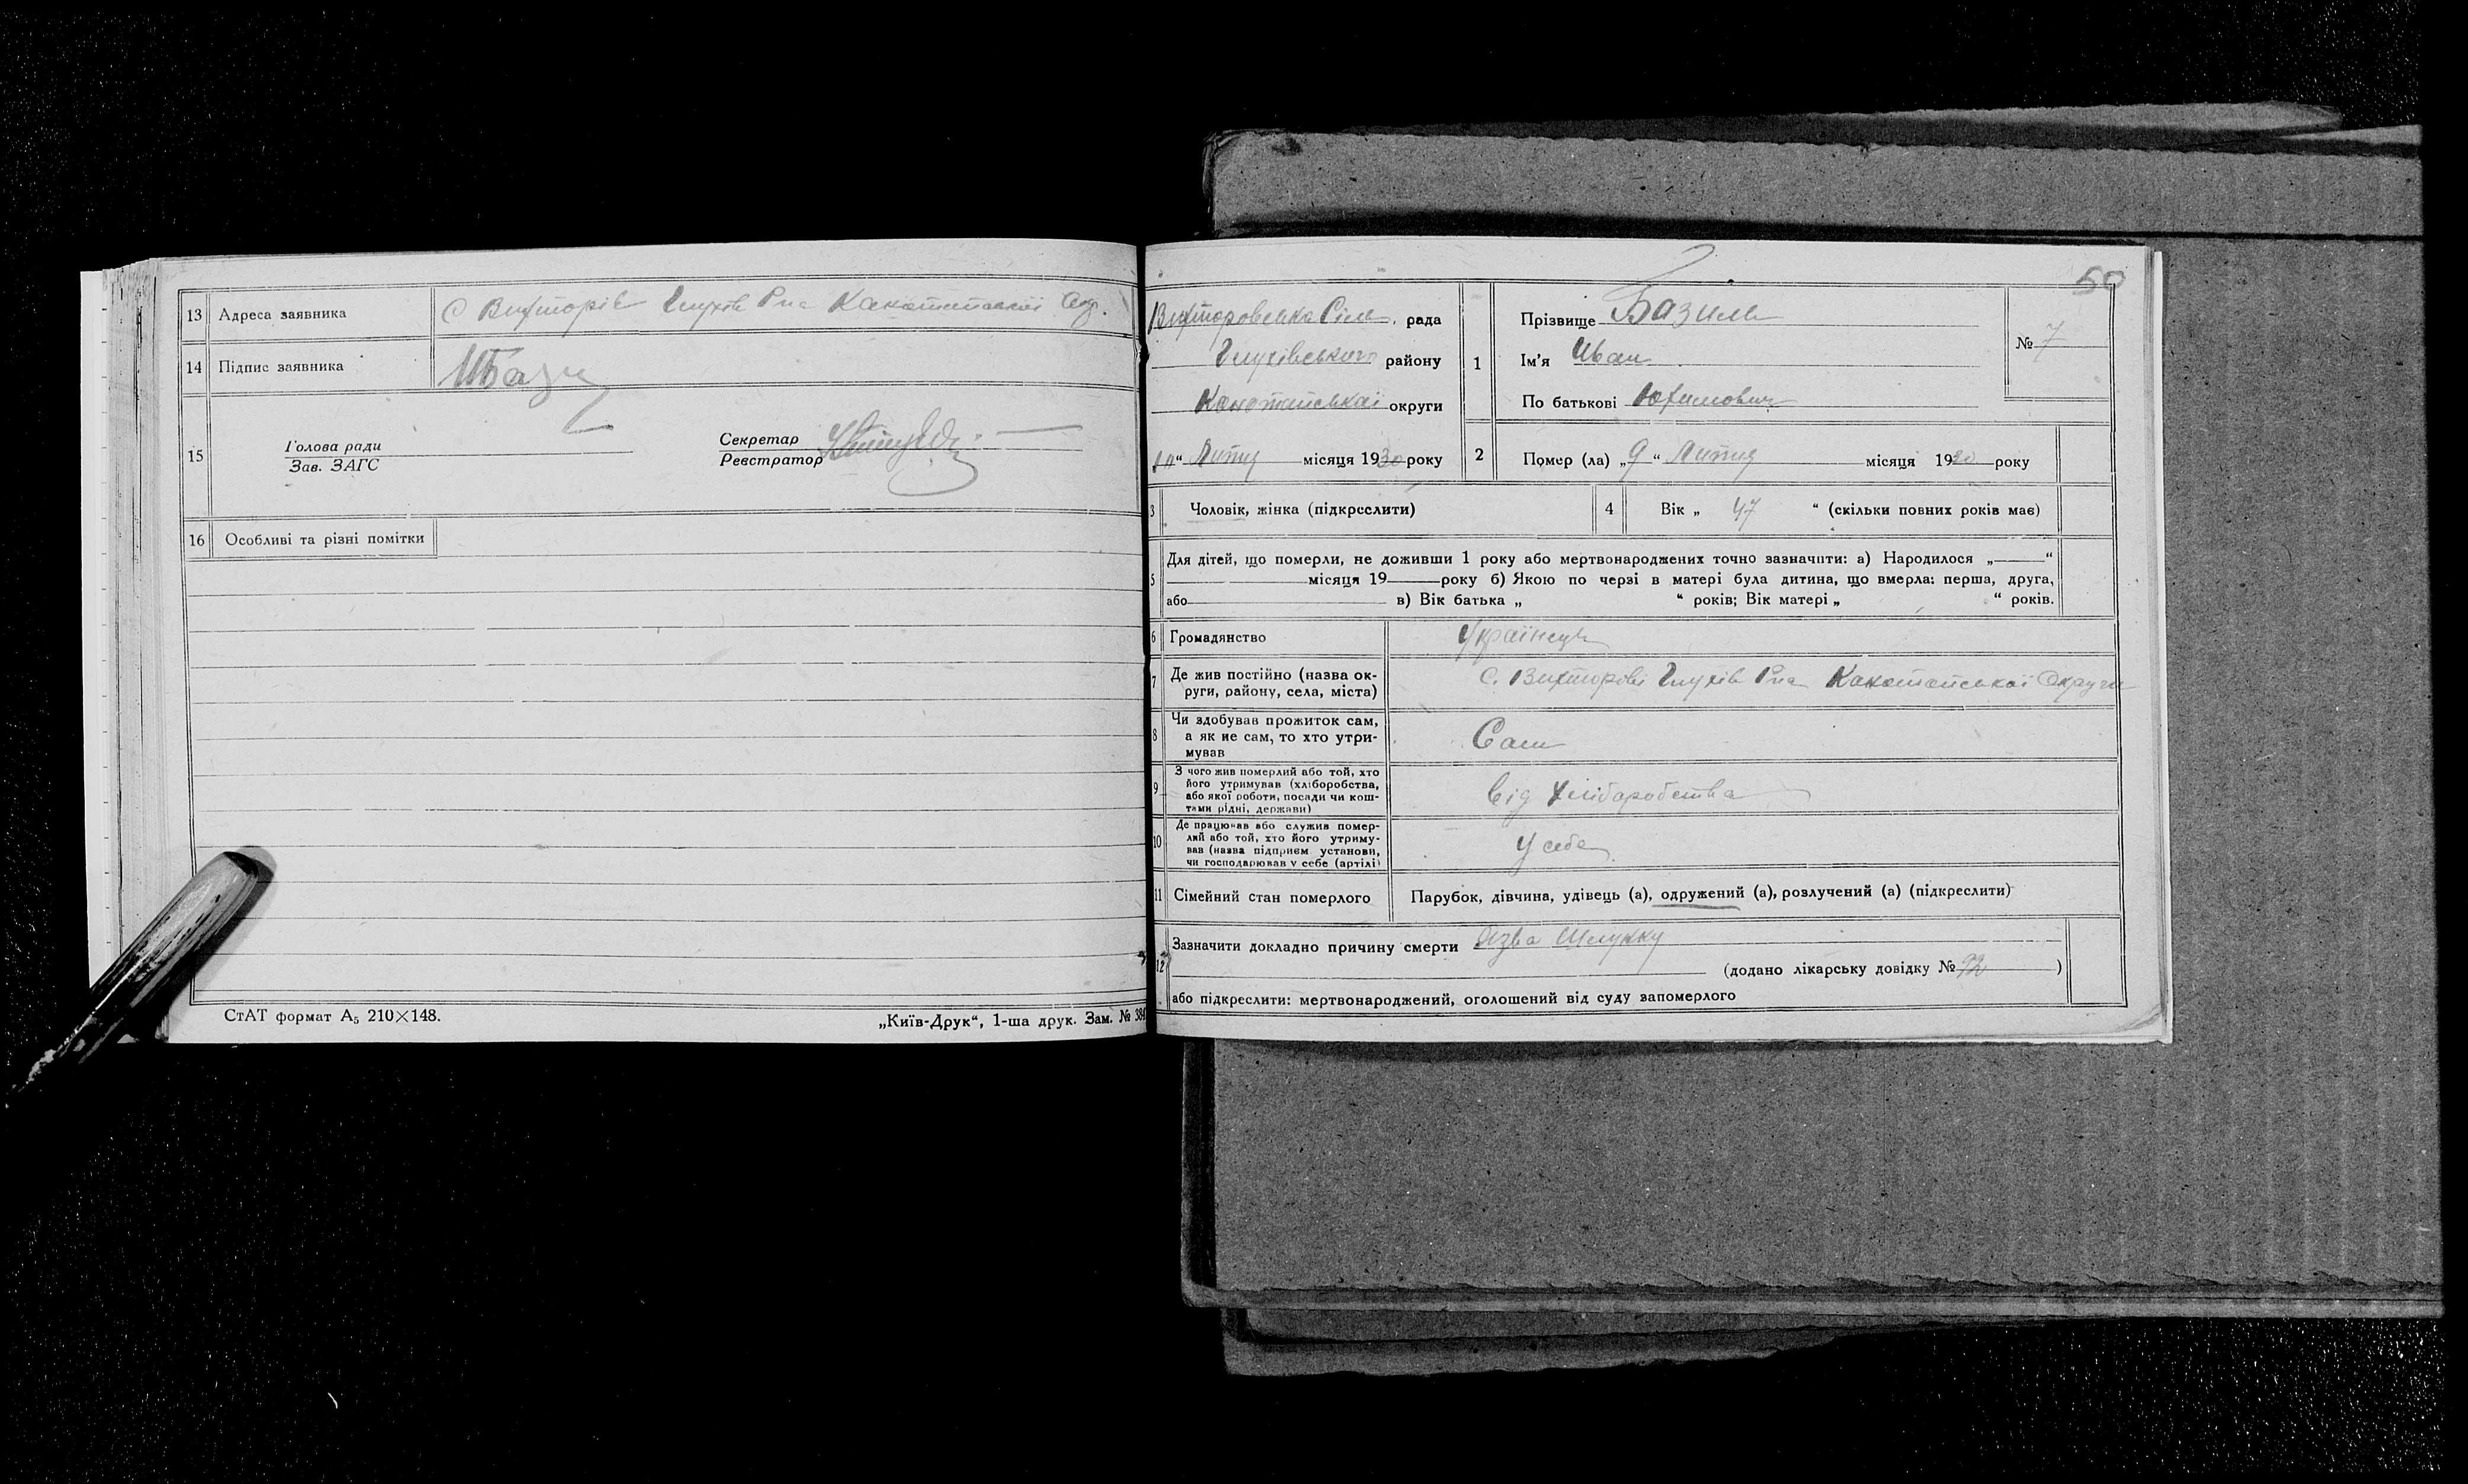 13 Адреса заявника С Вихторів Глухів Р-на Конотопської Окр.
14 Підпис заявника ІБази
15
Голова ради
Зав. ЗАГС
Секретар
Реєстратор
16 Особливі та різні помітки
СтАТ формат А5 210×148.
„Київ-Друк“, 1-ша друк. Зам. № 384
50
Вихторовська Сіль. рада
Глухівського району
Конотопської округи
10 “ Липня місяця 1930 року
1 Прізвище Базиль
Ім'я Іван
По батькові Юхимович
№ 7
2 Помер (ла) „9 “ Липня місяця 1930 року
3 Чоловік, жінка (підкреслити)
4 Вік „ 47 “ (скільки повних років має)
5 Для дітей, що померли, не доживши 1 року або мертвонароджених точно зазначити: а) Народилося „ “
місяця 19 року б) Якою по черзі в матері була дитина, що вмерла: перша, друга,
або в) Вік батька „ “ років; Вік матері „ “ років.
6 Громадянство Українець
7 Де жив постійно (назва ок-
руги, району, села, міста) С. Вихторові Глухів Р-на Конотопської Округи
8 Чи здобував прожиток сам,
а як не сам, то хто утри-
мував Сам
9 З чого жив померлий або той, хто
його утримував (хліборобства,
або якої роботи, посади чи кош-
тами рідні, держави) Від Хліборобства
10 Де працював або служив помер-
лий або той, хто його утриму-
вав (назва підприєм. установи,
чи господарював у себе (артілі) У себе
11 Сімейний стан померлого Парубок, дівчина, удівець (а), одружений (а), розлучений (а) (підкреслити)
12 Зазначити докладно причину смерти Язва Шлунку
(додано лікарську довідку № 92 )
або підкреслити: мертвонароджений, оголошений від суду запомерлого